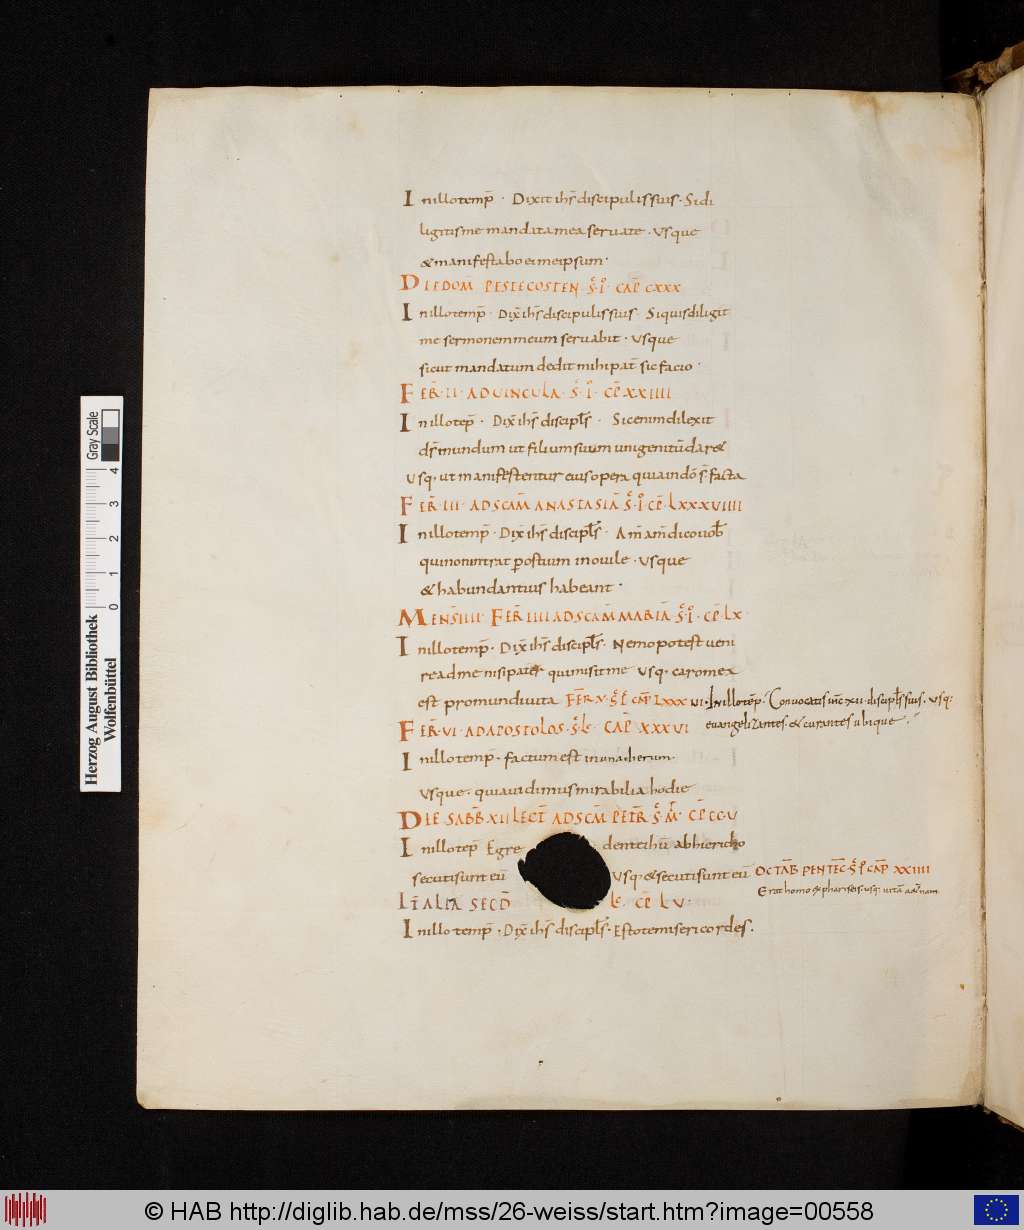 In illo temp̄ · Dixit ih̄s discipulis suis · Si di
ligitis me mandata mea servate · Usque
& manifestabo ei meipsum ·
DIE DOM̄ PENTECOSTEN S̄ I͞O CAP̄ CXXX
In illo temp̄ · Dix̄ ih̄s discipulis suis · Siquis diligit
me sermonem meum servabit · Usque
sicut mandatum dedit mihi pat̄ sic facio ·
FER̄ · II · AD VINCULA · S̄ I͞O · CP̄ XXIIII
In illo tep̄ · Dix̄ ih̄s discipl̄s · Sic enim dilexit
d̄s mundum ut filium suum unigenitū dar&
Usq· ut manifestentur eius opera quia in dō s̄ facta
FER̄ · III · AD SCAM̄ ANASTASIĀ S̄ I͞O CP̄ · LXXXVIIII
In illo temp̄ · Dix̄ ih̄s discipl̄s · Am̄ am̄ dico vob̄
qui non intrat p ostium in ovile · Usque
& habundantius habeant ·
MENS̄ IIII · FER̄ IIII AD SCAM̄ MARIĀ S̄ I͞O · CP̄ LX
In illo temp̄ · Dix̄ ih̄s discipl̄s · Nemo potest veni
re ad me nisi pater qui misit me Usq· caro mea
est pro mundi vita FER̄ V · S̄ L̄ CAP̄ LXXXVI · In illo tēp · Convocatis ih̄c xii · discipl̄s suis · usq:
evangelizantes · & curantes ubique ·
FER̄ · VI · AD APOSTOLOS · S̄ L̄ · CAP̄ XXXVI
In illo temp̄ · factum est in una dierum ·
Usque · quia vidimus mirabilia hodie
DIE SABB̄ XII LECT̄ AD SCM̄ PETR̄ S̄ · M̄ · CP̄ CCV
In illo tep̄ Egre dente ih̄u ab hiericho
secuti sunt eū Usq· & secuti sunt eū
OCTAB̄ PENTEC̄ S̄ I͞O CAP̄ XXIIII
Erat homo ex phariseis· usq· vitā aet̄nam·
LT̄ ALIA SECD̄ L̄ · CP̄ LV ·
In illo temp̄ · Dix̄ ih̄s discipl̄s · Estote misericordes ·
Herzog August Bibliothek
Wolfenbüttel
Gray Scale
0 1 2 3 4
© HAB http://diglib.hab.de/mss/26-weiss/start.htm?image=00558